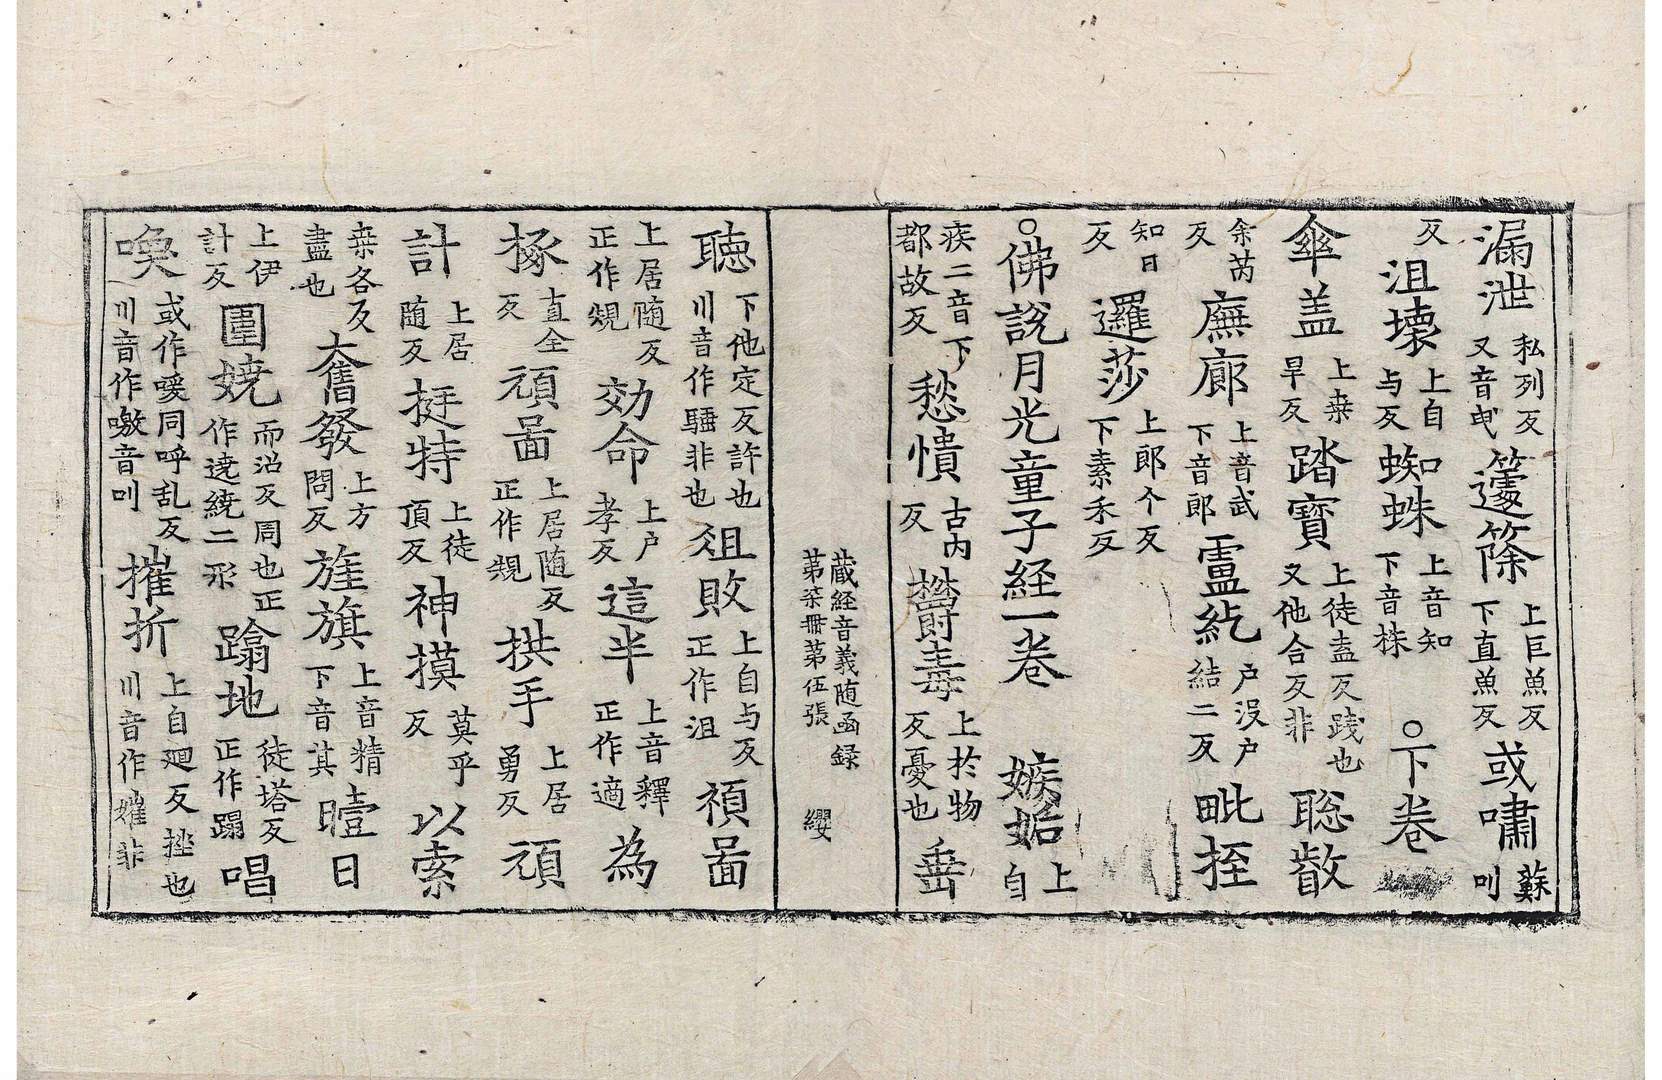 漏泄私列反又音曳籧篨上巨魚反下直魚反或嘯蘇叫
反沮壊上自与反蜘蛛上音知下音株○下卷
傘盖上桒旱反踏寶上徒盍反践也又他合反非聡叡
余芮反廡廊上音武下音郎㔧紇户没户結二反毗挃
知日反邏莎上郎个反下素禾反
○佛說月光童子経一卷 嫉妬上自
疾二音下都故反愁憒古内反欝毒上於物反憂也垂
蔵経音義随函録
苐柒冊苐伍張 纓
聴下他定反許也川音作䮠非也爼敗上自与反正作沮𥜥啚
上居随反正作䂓効命上户孝反這半上音釋正作適為
㧻直全反頑啚上居随反正作䂓拱手上居勇反頑
計上居随反挺特上徒頂反神摸莫乎反以索
桒各反盡也奮發上方問反旌旗上音精下音其曀日
上伊計反圍娆而沼反周也正作遶繞二形蹹地徒塔反正作蹋唱
喚或作嚾同呼乱反川音作噭音叫摧折上自廻反挫也川音作嬥非